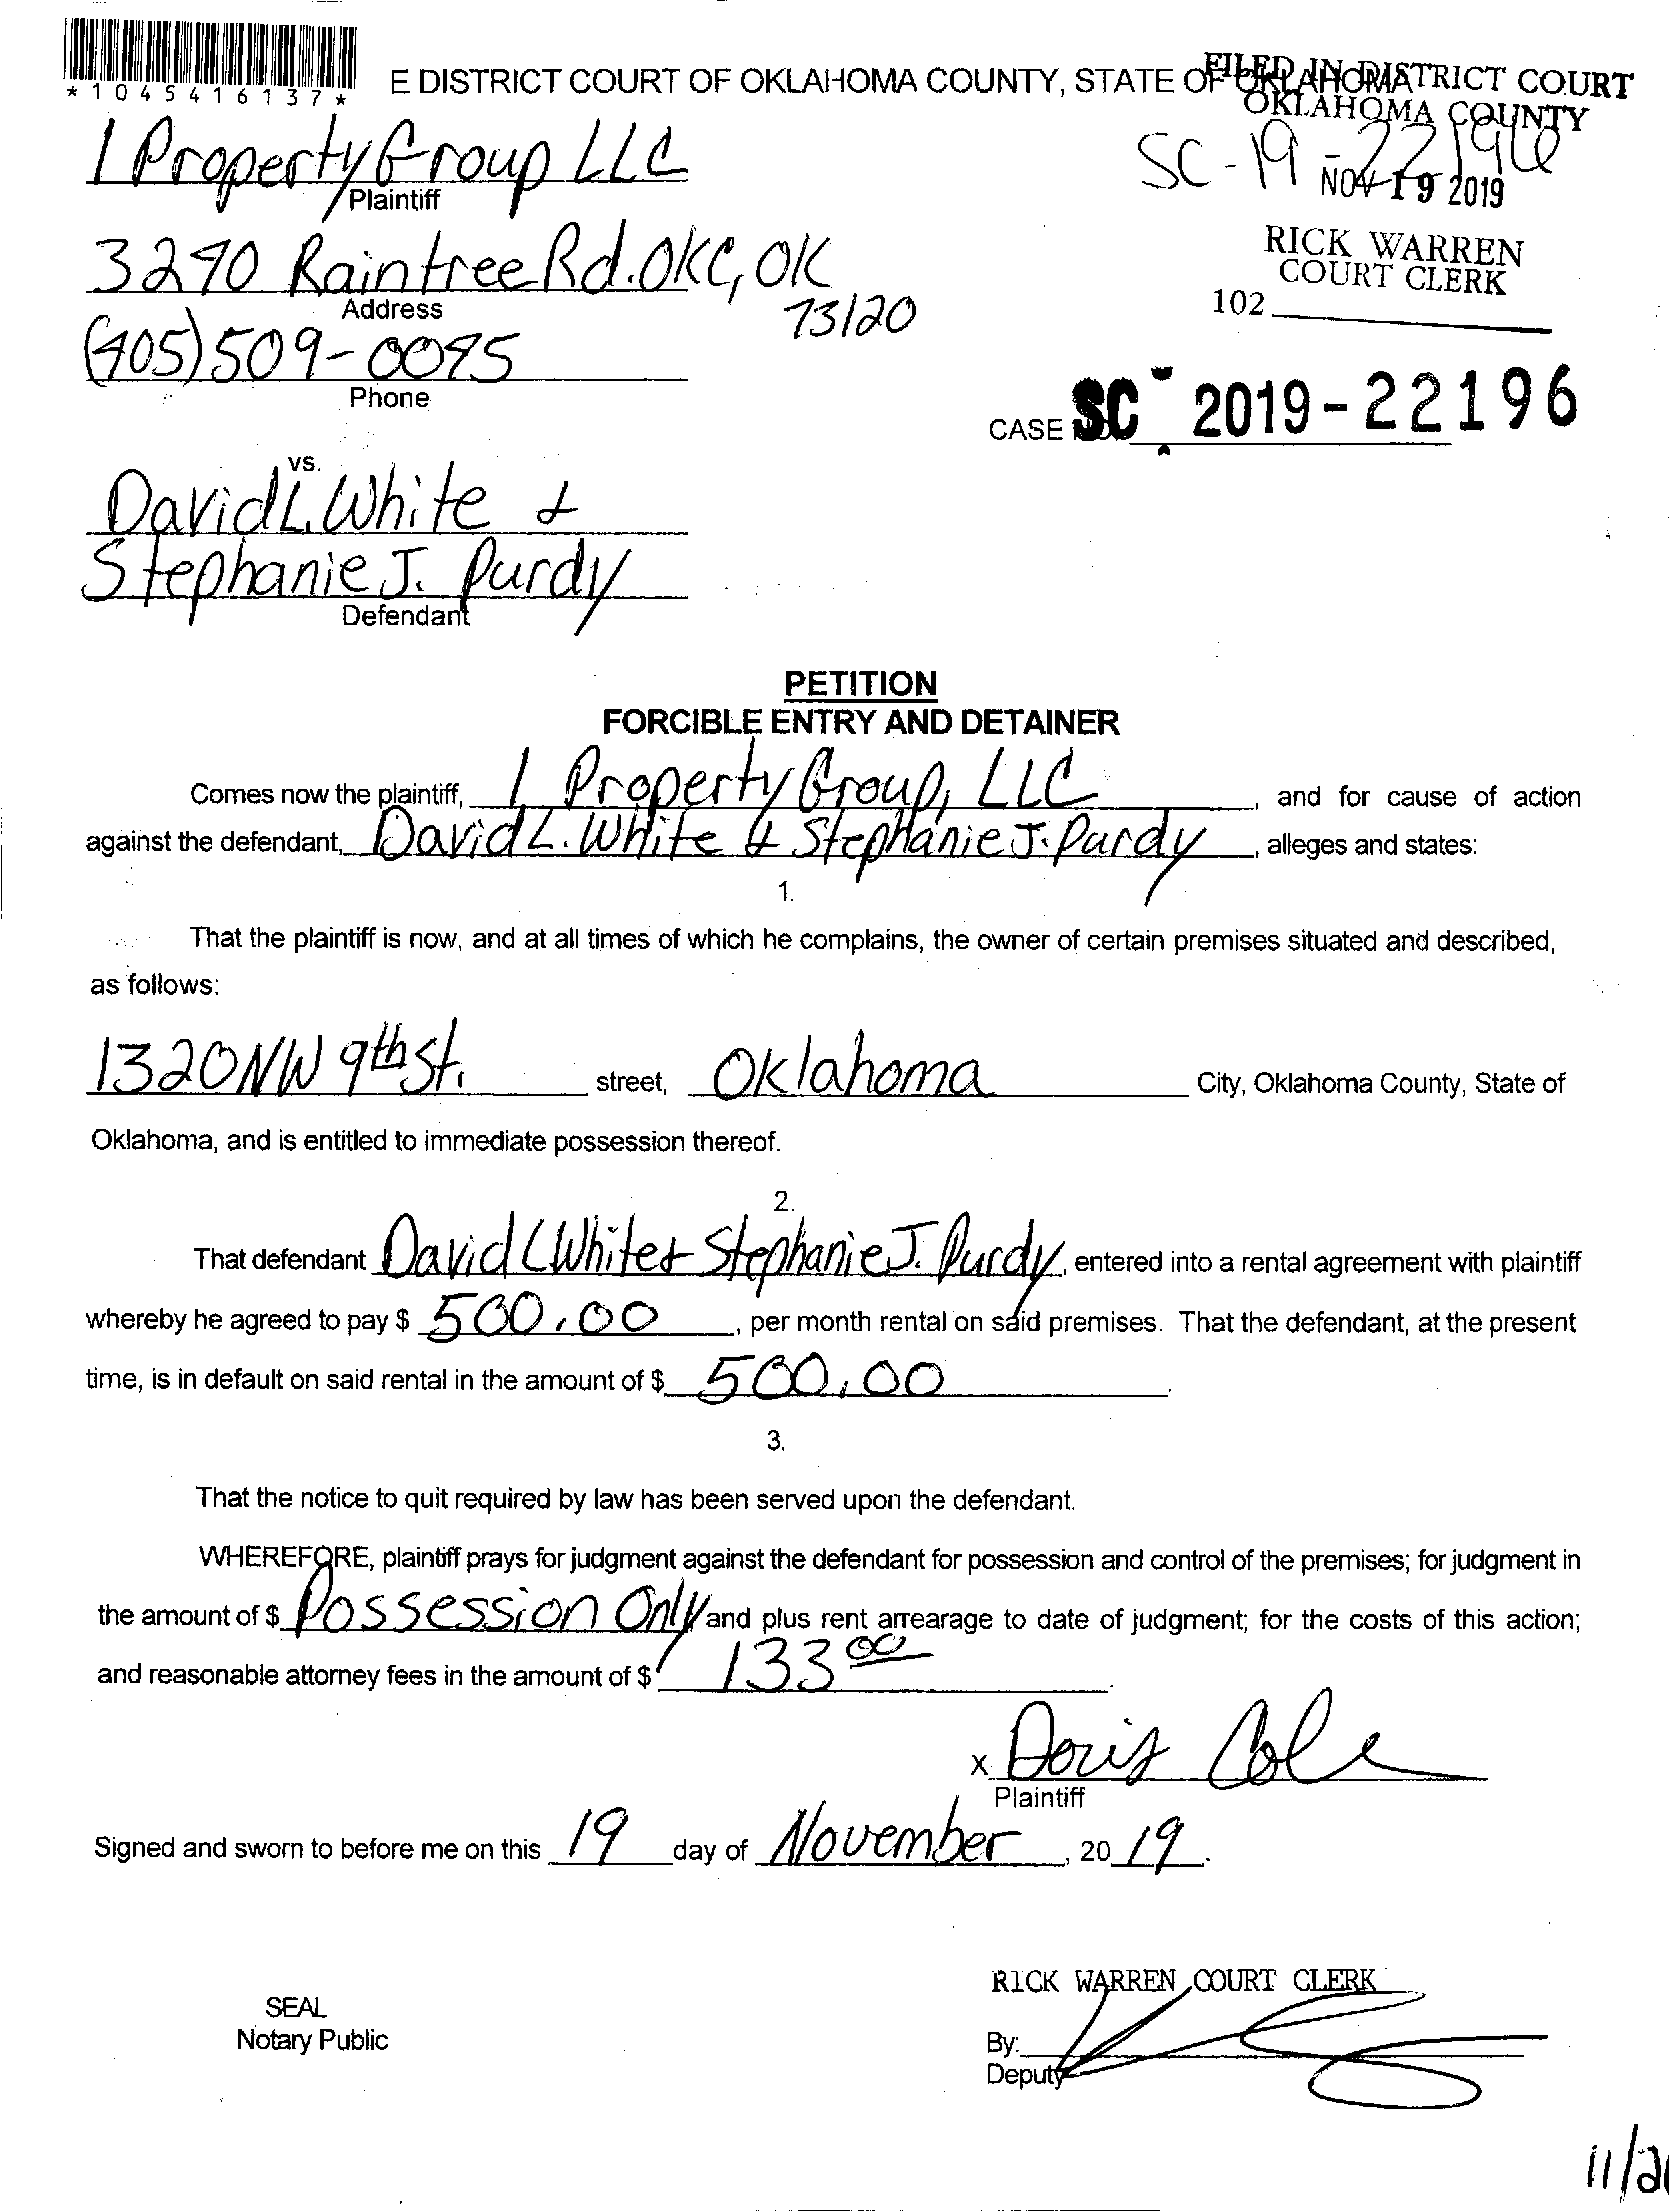 *1045416137*
E DISTRICT COURT OF OKLAHOMA COUNTY, STATE OF OKLAHOMA
FILED IN DISTRICT COURT
OKLAHOMA COUNTY
1 Property Group LLC
SC-19-22196
Plaintiff
NOV 19 2019
3290 Raintree Rd. OKC, OK
RICK WARREN
COURT CLERK
Address
73120
102
(405) 509-0095
Phone
CASE NO. SC 2019-22196
vs.
David L. White &
Stephanie J. Purdy
Defendant
PETITION
FORCIBLE ENTRY AND DETAINER
Comes now the plaintiff, 1 Property Group, LLC, and for cause of action
against the defendant, David L. White & Stephanie J. Purdy, alleges and states:
1.
That the plaintiff is now, and at all times of which he complains, the owner of certain premises situated and described,
as follows:
1320 NW 9th St. street, Oklahoma City, Oklahoma County, State of
Oklahoma, and is entitled to immediate possession thereof.
2.
That defendant David L White & Stephanie J. Purdy, entered into a rental agreement with plaintiff
whereby he agreed to pay $ 500.00, per month rental on said premises. That the defendant, at the present
time, is in default on said rental in the amount of $ 500.00.
3.
That the notice to quit required by law has been served upon the defendant.
WHEREFORE, plaintiff prays for judgment against the defendant for possession and control of the premises; for judgment in
the amount of $ Possession Only and plus rent arrearage to date of judgment; for the costs of this action;
and reasonable attorney fees in the amount of $ 133 00.
x Doris Cole
Plaintiff
Signed and sworn to before me on this 19 day of November, 20 19.
RICK WARREN COURT CLERK
SEAL
Notary Public
By:
Deputy